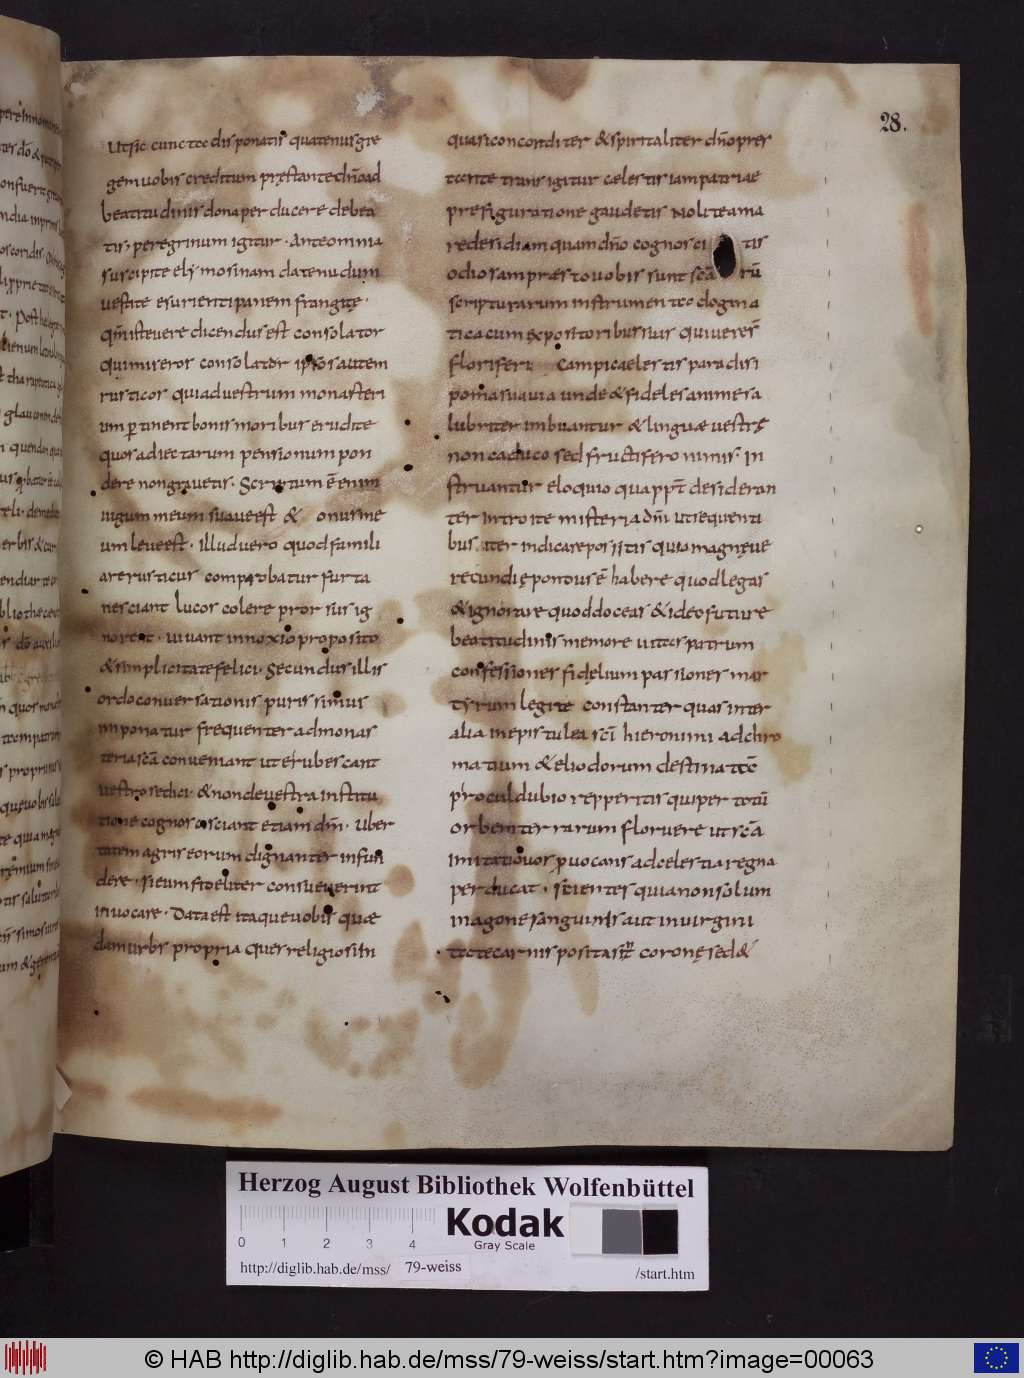 28.
ut sic cuncta disponatis quatenus gre
gem uobis creditum pręstante dn̄o ad
beatitudinis dona perducere debea
tis, peregrinum igitur. Ante omnia
suscipite elymosinam date nudum
uestite esurienti panem frangite.
qm̄ iste uere dicendus est consolator
qui miseros consolator ipsos autem
rusticos qui ad uestrum monasteri
um ptinent bonis moribus erudite
quos adiectarum pensionum pon
dere non grauetis. Scriptum ē enim
iugum meum suaue est & onus me
um leue est. illud uero quod famili
are rusticus comprobatur furta
nesciant lucos colere prorsus ig
norent. uiuant innoxio proposito
& simplicitate felici. Secundus illis
ordo conuersationis purissimus
imponatur frequenter ad monas
teria scā conueniant ut erubescant
uestros dici. & non de uestra institu
tione cognosci sciant etiam dm̄. uber
tatem agris eorum dignanter infun
dere. si eum fideliter consueuerint
inuocare. Data est itaque uobis quæ
dam urbs propria Ques religiosi in
quasi concorditer & spiritaliter dn̄o pres
tante transigitur cælestis iam patriae
prefiguratione gaudetis Nolite ama
re desidiam quam dn̄o cognosci tis
odiosam præsto uobis sunt scā rū
scripturarum instrumenta dogma
tica cum expositoribus suis qui ueres̄
floriferi campi caelestis paradisi
poma suauia unde & fideles animę sa
lubriter imbuantur & linguæ uestrę
non caduco sed fructifero nimis. In
struantur eloquio qua ppt̄ desideran
ter introite misteria dn̄i ut sequenti
bus iter indicare possitis quia magnę ue
recundię pondus ē habere quod legas
& ignorare quod doceas & ideo future
beatitudinis memores uitas patrum
confessiones fidelium passiones mar
tyrum legite constanter quas inter
alia in epistulea scī hieronimi ad chro
matium & eliodorum destinatā
procul dubio repperitis qui per totū
orbem terrarum floruere ut scā
imitatio uos prouocans ad celestia regna
perducat. scientes quia non solum
in agone sanguinis aut in uirgini
tate carnis positas coronę sed &
Herzog August Bibliothek Wolfenbüttel
0 1 2 3 4
Kodak
Gray Scale
http://diglib.hab.de/mss/ 79-weiss /start.htm
© HAB http://diglib.hab.de/mss/79-weiss/start.htm?image=00063